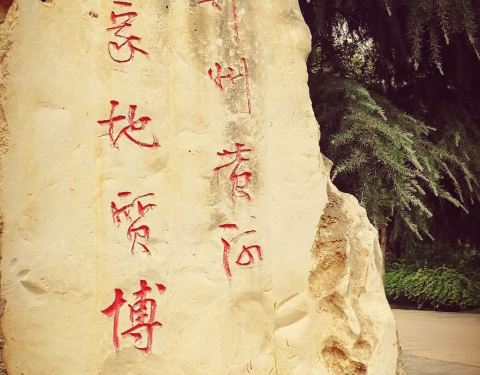 州黄河
家地质博